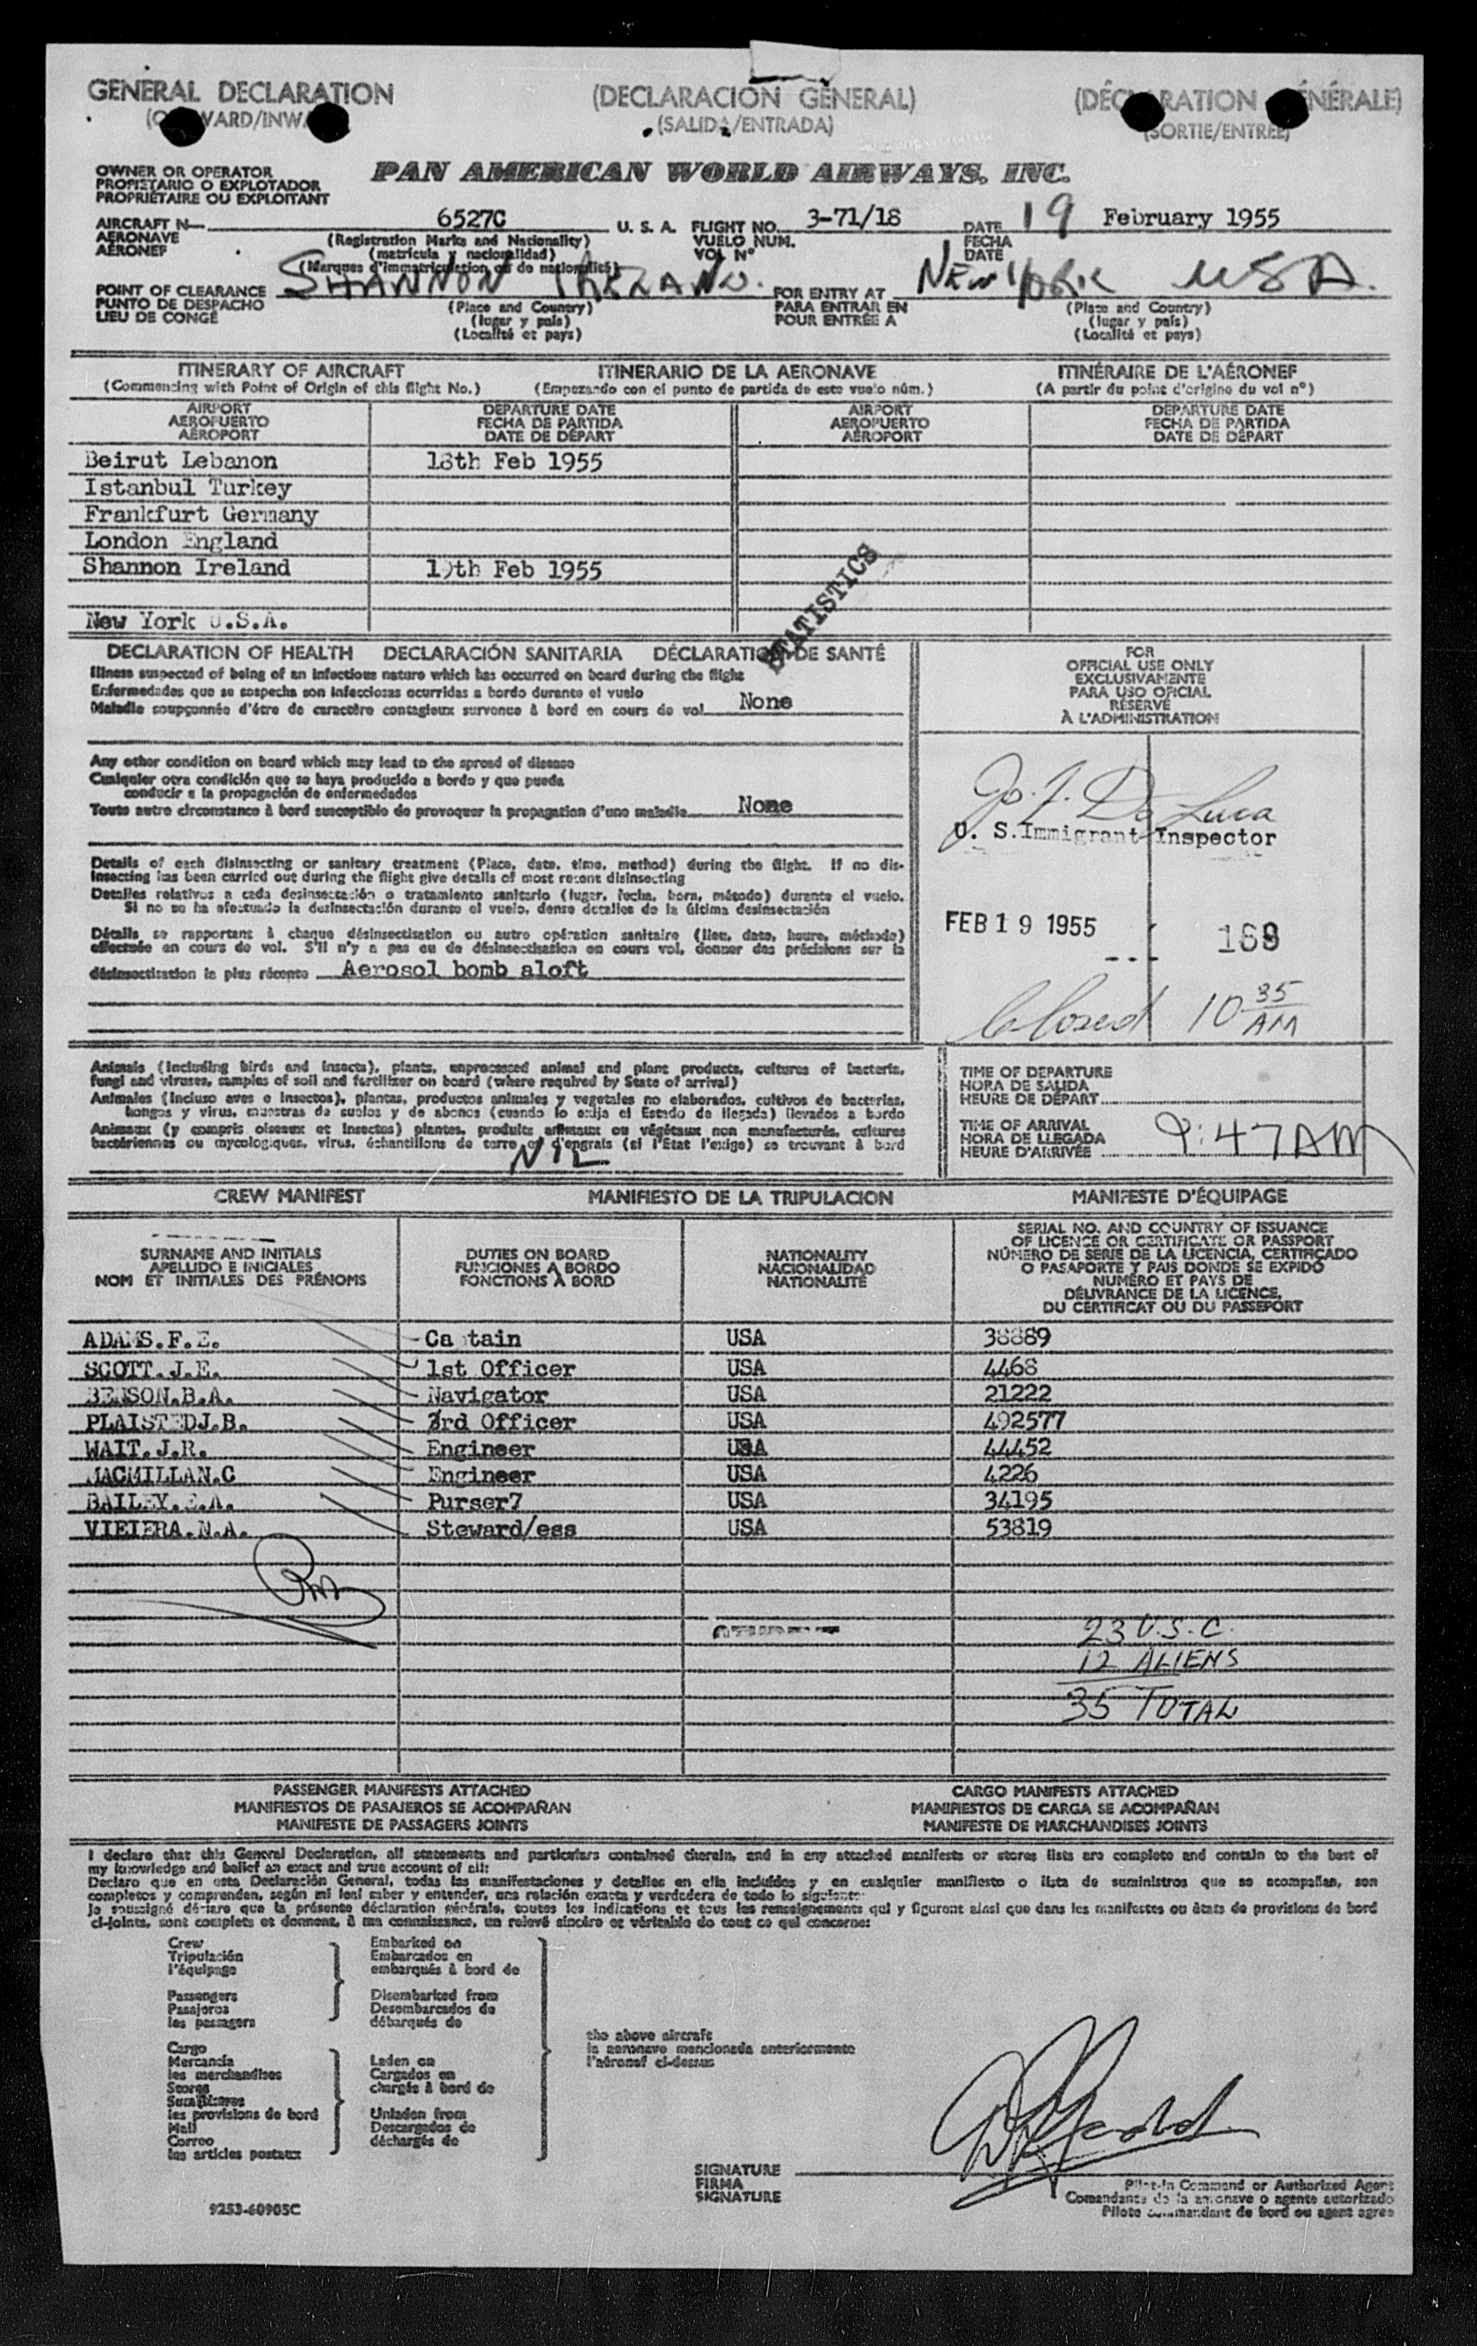 GENERAL DECLARATION (DECLARACIÓN GENERAL)
(SALIDA/ENTRADA) (SORTIE/ENTRÉE)
OWNER OR OPERATOR
PROPIETARIO O EXPLOTADOR
PROPRIÉTAIRE OU EXPLOITANT
PAN AMERICAN WORLD AIRWAYS, INC.
AIRCRAFT N— 6527C U. S. A. FLIGHT NO. 3-71/18 DATE 19 February 1955
AERONAVE (Registration Marks and Nationality) VUELO NUM. FECHA
AÉRONEF (matrícula y nacionalidad) VOL N° DATE
(Marques d'immatriculation ou de nationalité)
POINT OF CLEARANCE SHANNON IRELAND. FOR ENTRY AT NEW YORK USA.
PUNTO DE DESPACHO (Place and Country) PARA ENTRAR EN (Place and Country)
LIEU DE CONGÉ (lugar y país) POUR ENTRÉE A (lugar y país)
(Localité et pays) (Localité et pays)
ITINERARY OF AIRCRAFT ITINERARIO DE LA AERONAVE ITINÉRAIRE DE L'AÉRONEF
(Commencing with Point of Origin of this flight No.) (Empezando con el punto de partida de este vuelo núm.) (A partir du point d'origine du vol n°)
AIRPORT DEPARTURE DATE AIRPORT DEPARTURE DATE
AEROPUERTO FECHA DE PARTIDA AEROPUERTO FECHA DE PARTIDA
AÉROPORT DATE DE DÉPART AÉROPORT DATE DE DÉPART
Beirut Lebanon 18th Feb 1955
Istanbul Turkey
Frankfurt Germany
London England
Shannon Ireland 19th Feb 1955
New York U.S.A.
STATISTICS
DECLARATION OF HEALTH DECLARACIÓN SANITARIA DÉCLARATION DE SANTÉ
Illness suspected of being of an infectious nature which has occurred on board during the flight
Enfermedades que se sospecha son infecciosas ocurridas a bordo durante el vuelo
Maladie soupçonnée d'être de caractère contagieux survenue à bord en cours de vol None
Any other condition on board which may lead to the spread of disease
Cualquier otra condición que se haya producido a bordo y que pueda
conducir a la propagación de enfermedades
Toute autre circonstance à bord susceptible de provoquer la propagation d'une maladie None
Details of each disinsecting or sanitary treatment (Place, date, time, method) during the flight. If no dis-
insecting has been carried out during the flight give details of most recent disinsecting
Detalles relativos a cada desinsectación o tratamiento sanitario (lugar, fecha, hora, método) durante el vuelo.
Si no se ha efectuado la desinsectación durante el vuelo, dense detalles de la última desinsectación
Détails se rapportant à chaque désinsectisation ou autre opération sanitaire (lieu, date, heure, méthode)
effectuée en cours de vol. S'il n'y a pas eu de désinsectisation en cours vol, donner des précisions sur la
désinsectisation la plus récente Aerosol bomb aloft
FOR
OFFICIAL USE ONLY
EXCLUSIVAMENTE
PARA USO OFICIAL
RÉSERVÉ
À L'ADMINISTRATION
Jo. J. De Luca
U. S. Immigrant Inspector
FEB 19 1955 169
Closed 10 35 AM
Animals (including birds and insects), plants, unprocessed animal and plant products, cultures of bacteria,
fungi and viruses, samples of soil and fertilizer on board (where required by State of arrival)
Animales (incluso aves e insectos), plantas, productos animales y vegetales no elaborados, cultivos de bacterias,
hongos y virus, muestras de suelos y de abonos (cuando lo exija el Estado de llegada) llevados a bordo
Animaux (y compris oiseaux et insectes) plantes, produits animaux ou végétaux non manufacturés, cultures
bactériennes ou mycologiques, virus, échantillons de terre ou d'engrais (si l'Etat l'exige) se trouvant à bord
NIL
TIME OF DEPARTURE
HORA DE SALIDA
HEURE DE DÉPART
TIME OF ARRIVAL
HORA DE LLEGADA
HEURE D'ARRIVÉE 9:47AM
CREW MANIFEST MANIFIESTO DE LA TRIPULACION MANIFESTE D'ÉQUIPAGE
SURNAME AND INITIALS
APELLIDO E INICIALES
NOM ET INITIALES DES PRÉNOMS
DUTIES ON BOARD
FUNCIONES A BORDO
FONCTIONS À BORD
NATIONALITY
NACIONALIDAD
NATIONALITÉ
SERIAL NO. AND COUNTRY OF ISSUANCE
OF LICENCE OR CERTIFICATE OR PASSPORT
NÚMERO DE SERIE DE LA LICENCIA, CERTIFICADO
O PASAPORTE Y PAIS DONDE SE EXPIDÓ
NUMÉRO ET PAYS DE
DÉLIVRANCE DE LA LICENCE,
DU CERTIFICAT OU DU PASSEPORT
ADAMS.F.E. Captain USA 38889
SCOTT.J.E. 1st Officer USA 4468
BENSON.B.A. Navigator USA 21222
PLAISTEDJ.B. 3rd Officer USA 492577
WAIT.J.R. Engineer USA 44452
MACMILLAN.C Engineer USA 4226
BAILEY.E.A. Purser7 USA 34195
VIEIERA.N.A. Steward/ess USA 53819
23 U.S.C.
12 ALIENS
35 TOTAL
PASSENGER MANIFESTS ATTACHED CARGO MANIFESTS ATTACHED
MANIFIESTOS DE PASAJEROS SE ACOMPAÑAN MANIFIESTOS DE CARGA SE ACOMPAÑAN
MANIFESTE DE PASSAGERS JOINTS MANIFESTE DE MARCHANDISES JOINTS
I declare that this General Declaration, all statements and particulars contained therein, and in any attached manifests or stores lists are complete and contain to the best of
my knowledge and belief an exact and true account of all:
Declaro que en esta Declaración General, todas las manifestaciones y detalles en ella incluidos y en cualquier manifiesto o lista de suministros que se acompañan, son
completos y comprenden, según mi leal saber y entender, una relación exacta y verdadera de todo lo siguiente:
Je soussigné déclare que la présente déclaration générale, toutes les indications et tous les renseignements qui y figurent ainsi que dans les manifestes ou états de provisions de bord
ci-joints, sont complets et donnent, à ma connaissance, un relevé sincère et véritable de tout ce qui concerne:
Crew Embarked on
Tripulación Embarcados en
l'équipage embarqués à bord de
Passengers Disembarked from
Pasajeros Desembarcados de
les passagers débarqués de
the above aircraft
la aeronave mencionada anteriormente
l'aéronef ci-dessus
Cargo
Mercancía Laden on
les merchandises Cargados en
Stores chargés à bord de
Suministros
les provisions de bord Unladen from
Mail Descargados de
Correo déchargés de
les articles postaux
SIGNATURE
FIRMA
SIGNATURE
Pilot-in Command or Authorized Agent
Comandante de la aeronave o agente autorizado
Pilote commandant de bord ou agent agréé
9253-60905C